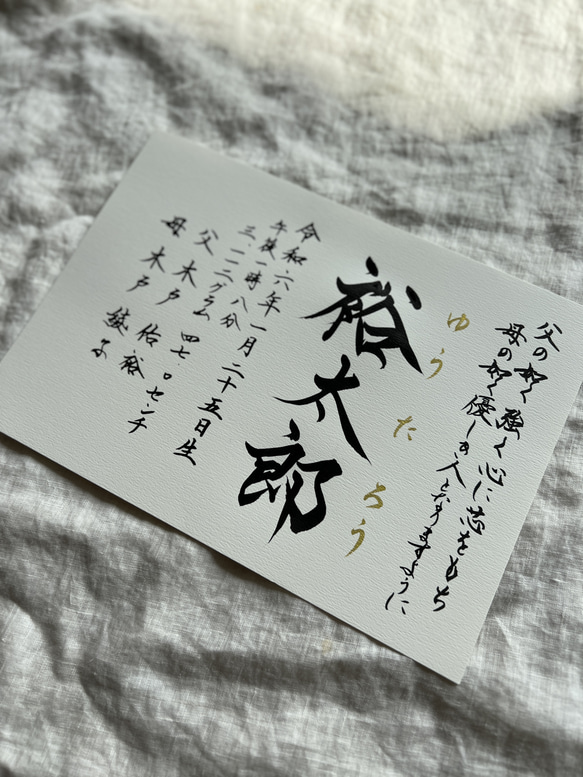 父の如く強く心に芯をもち
母の如く優しき人となりますように
ゆうたろう
裕太郎
令和六年一月二十五日生
午後一時八分
三・一一二グラム 四七・〇センチ
父 木戸 佑裕
母 木戸 綾子